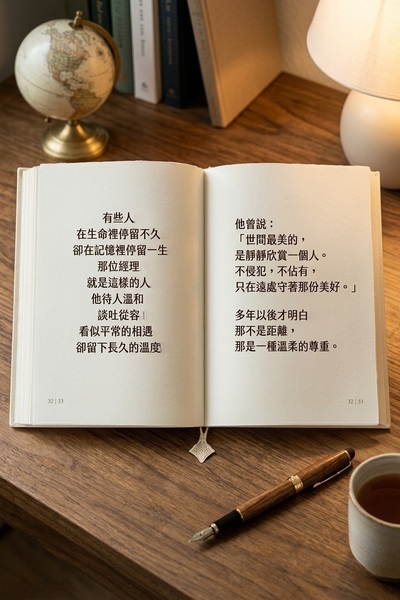 有些人
在生命裡停留不久
卻在記憶裡停留一生
那位經理
就是這樣的人
他待人溫和
談吐從容
看似平常的相遇
卻留下長久的溫度
32 | 33
他曾說：
「世間最美的，
是靜靜欣賞一個人。
不侵犯，不佔有，
只在遠處守著那份美好。」
多年以後才明白
那不是距離，
那是一種溫柔的尊重。
32 | 31